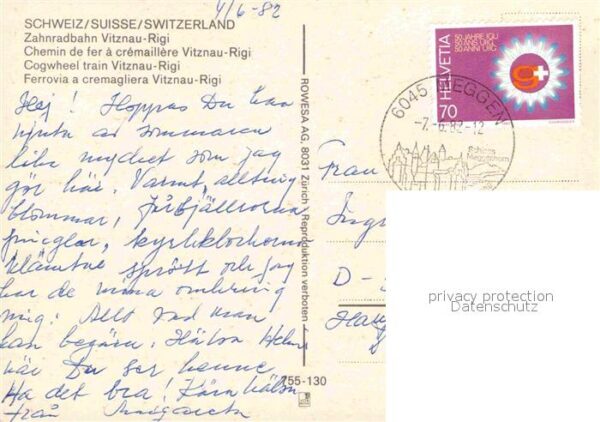 4/6-82
SCHWEIZ/SUISSE/SWITZERLAND
Zahnradbahn Vitznau-Rigi
Chemin de fer à crémaillère Vitznau-Rigi
Cogwheel train Vitznau-Rigi
Ferrovia a cremagliera Vitznau-Rigi
Hej! Hoppas Du kan
njuta av sommaren
lika mycket som jag
gör här. Varmt, allting
blommar,
fåglar, kyrkklockorna
och jag
har de mina omkring
mig. Allt vad man
kan begära. Hälsa
när Du ser henne
Ha det bra! Kära hälsn
från Margareta
ROWESA AG, 8031 Zürich Reproduktion verboten
755-130
50 JAHRE IGU
50 ANS UIG
50 ANNI UIG
HELVETIA
70
6045 MEGGEN
-7.-6.82-12
Schloss
Meggenhorn
Frau
Ingr
D-
privacy protection
Datenschutz